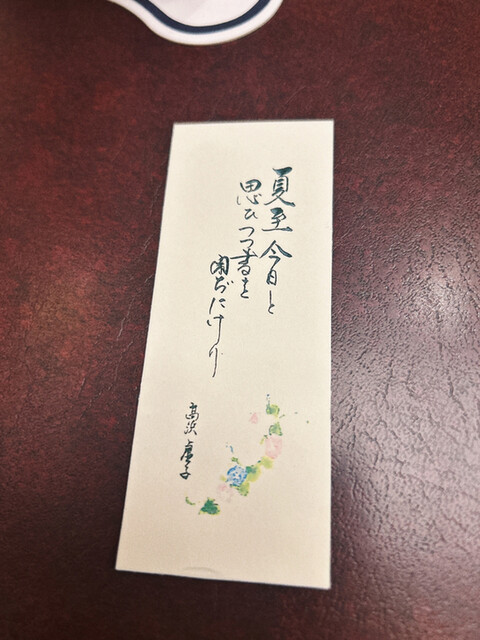 夏至今日と
思ひつつ書を
閉ぢにけり
高浜虚子